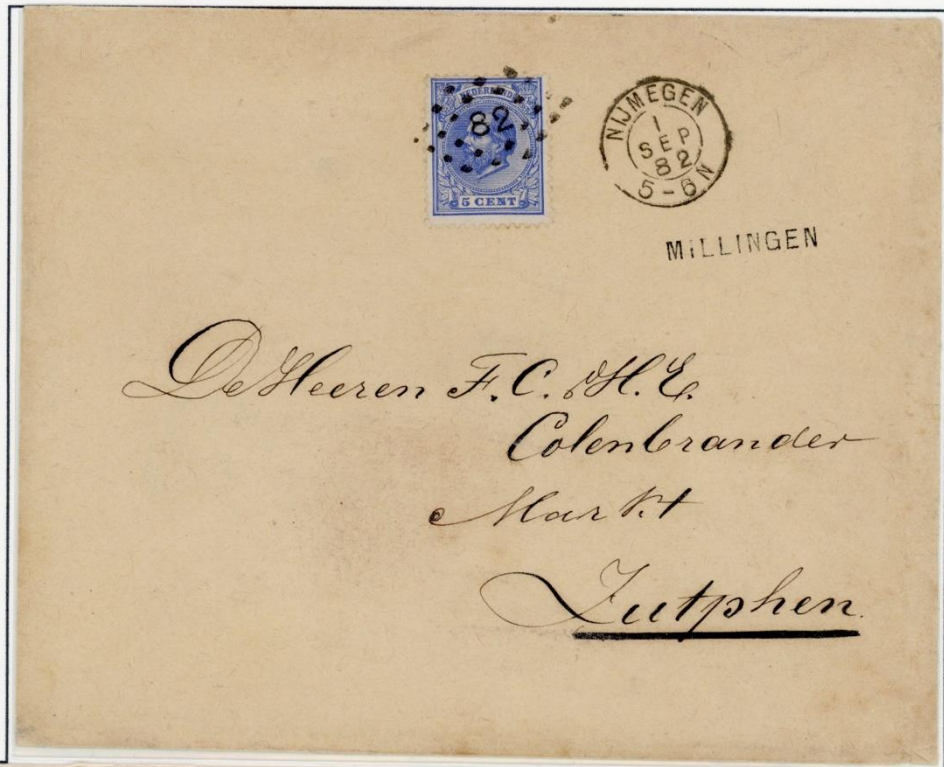 NEDERLAND
82
5 CENT
NIJMEGEN
1
SEP
82
5-6N
MILLINGEN
De Heeren F. C. & H. E.
Colenbrander
Markt
Zutphen